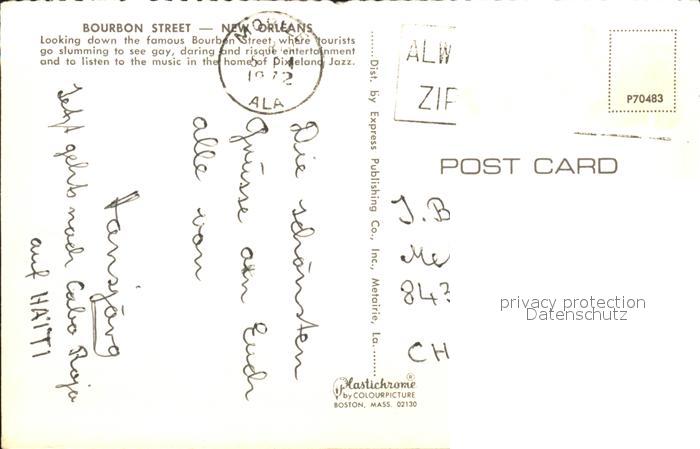 BOURBON STREET — NEW ORLEANS
Looking down the famous Bourbon Street, where tourists
go slumming to see gay, daring and risque entertainment
and to listen to the music in the home of Dixieland Jazz.
1972
ALA
Die schönsten
Grüsse an Euch
alle von
Hansjörg
Jetzt gehts nach Cabo Rojo
auf HAITI
Dist. by Express Publishing Co., Inc., Metairie, La.
Plastichrome®
by COLOURPICTURE
BOSTON, MASS. 02130
ALW
ZIP
P70483
POST CARD
J. B
Me
843
CH
privacy protection
Datenschutz